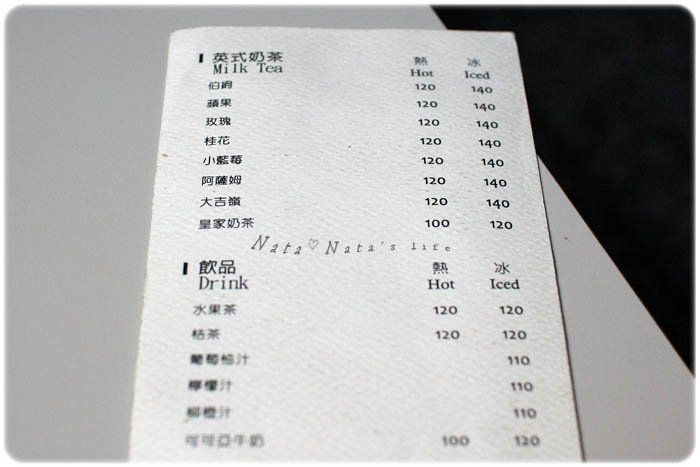 英式奶茶 熱 冰
Milk Tea Hot Iced
伯爵 120 140
蘋果 120 140
玫瑰 120 140
桂花 120 140
小藍莓 120 140
阿薩姆 120 140
大吉嶺 120 140
皇家奶茶 100 120
Nata♡Nata's life
飲品 熱 冰
Drink Hot Iced
水果茶 120 120
桔茶 120 120
葡萄柚汁 110
檸檬汁 110
柳橙汁 110
可可亞牛奶 100 120